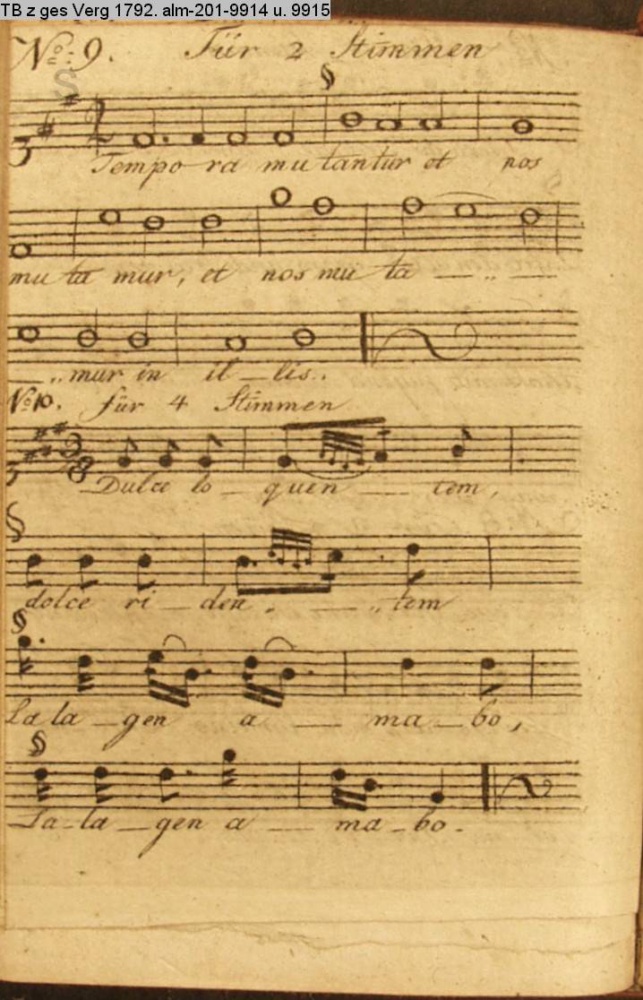 TB z ges Verg 1792. alm-201-9914 u. 9915
No: 9. Für 2 Stimmen
Tempo ra mu tantur et nos
mu ta mur, et nos mu ta — „ —
„ mur in il — lis.
No 10. für 4 Stimmen
Dulce lo — quen — tem,
dolce ri — den — „ tem
La la — gen a — ma — bo,
La — la — gen a — ma — bo.